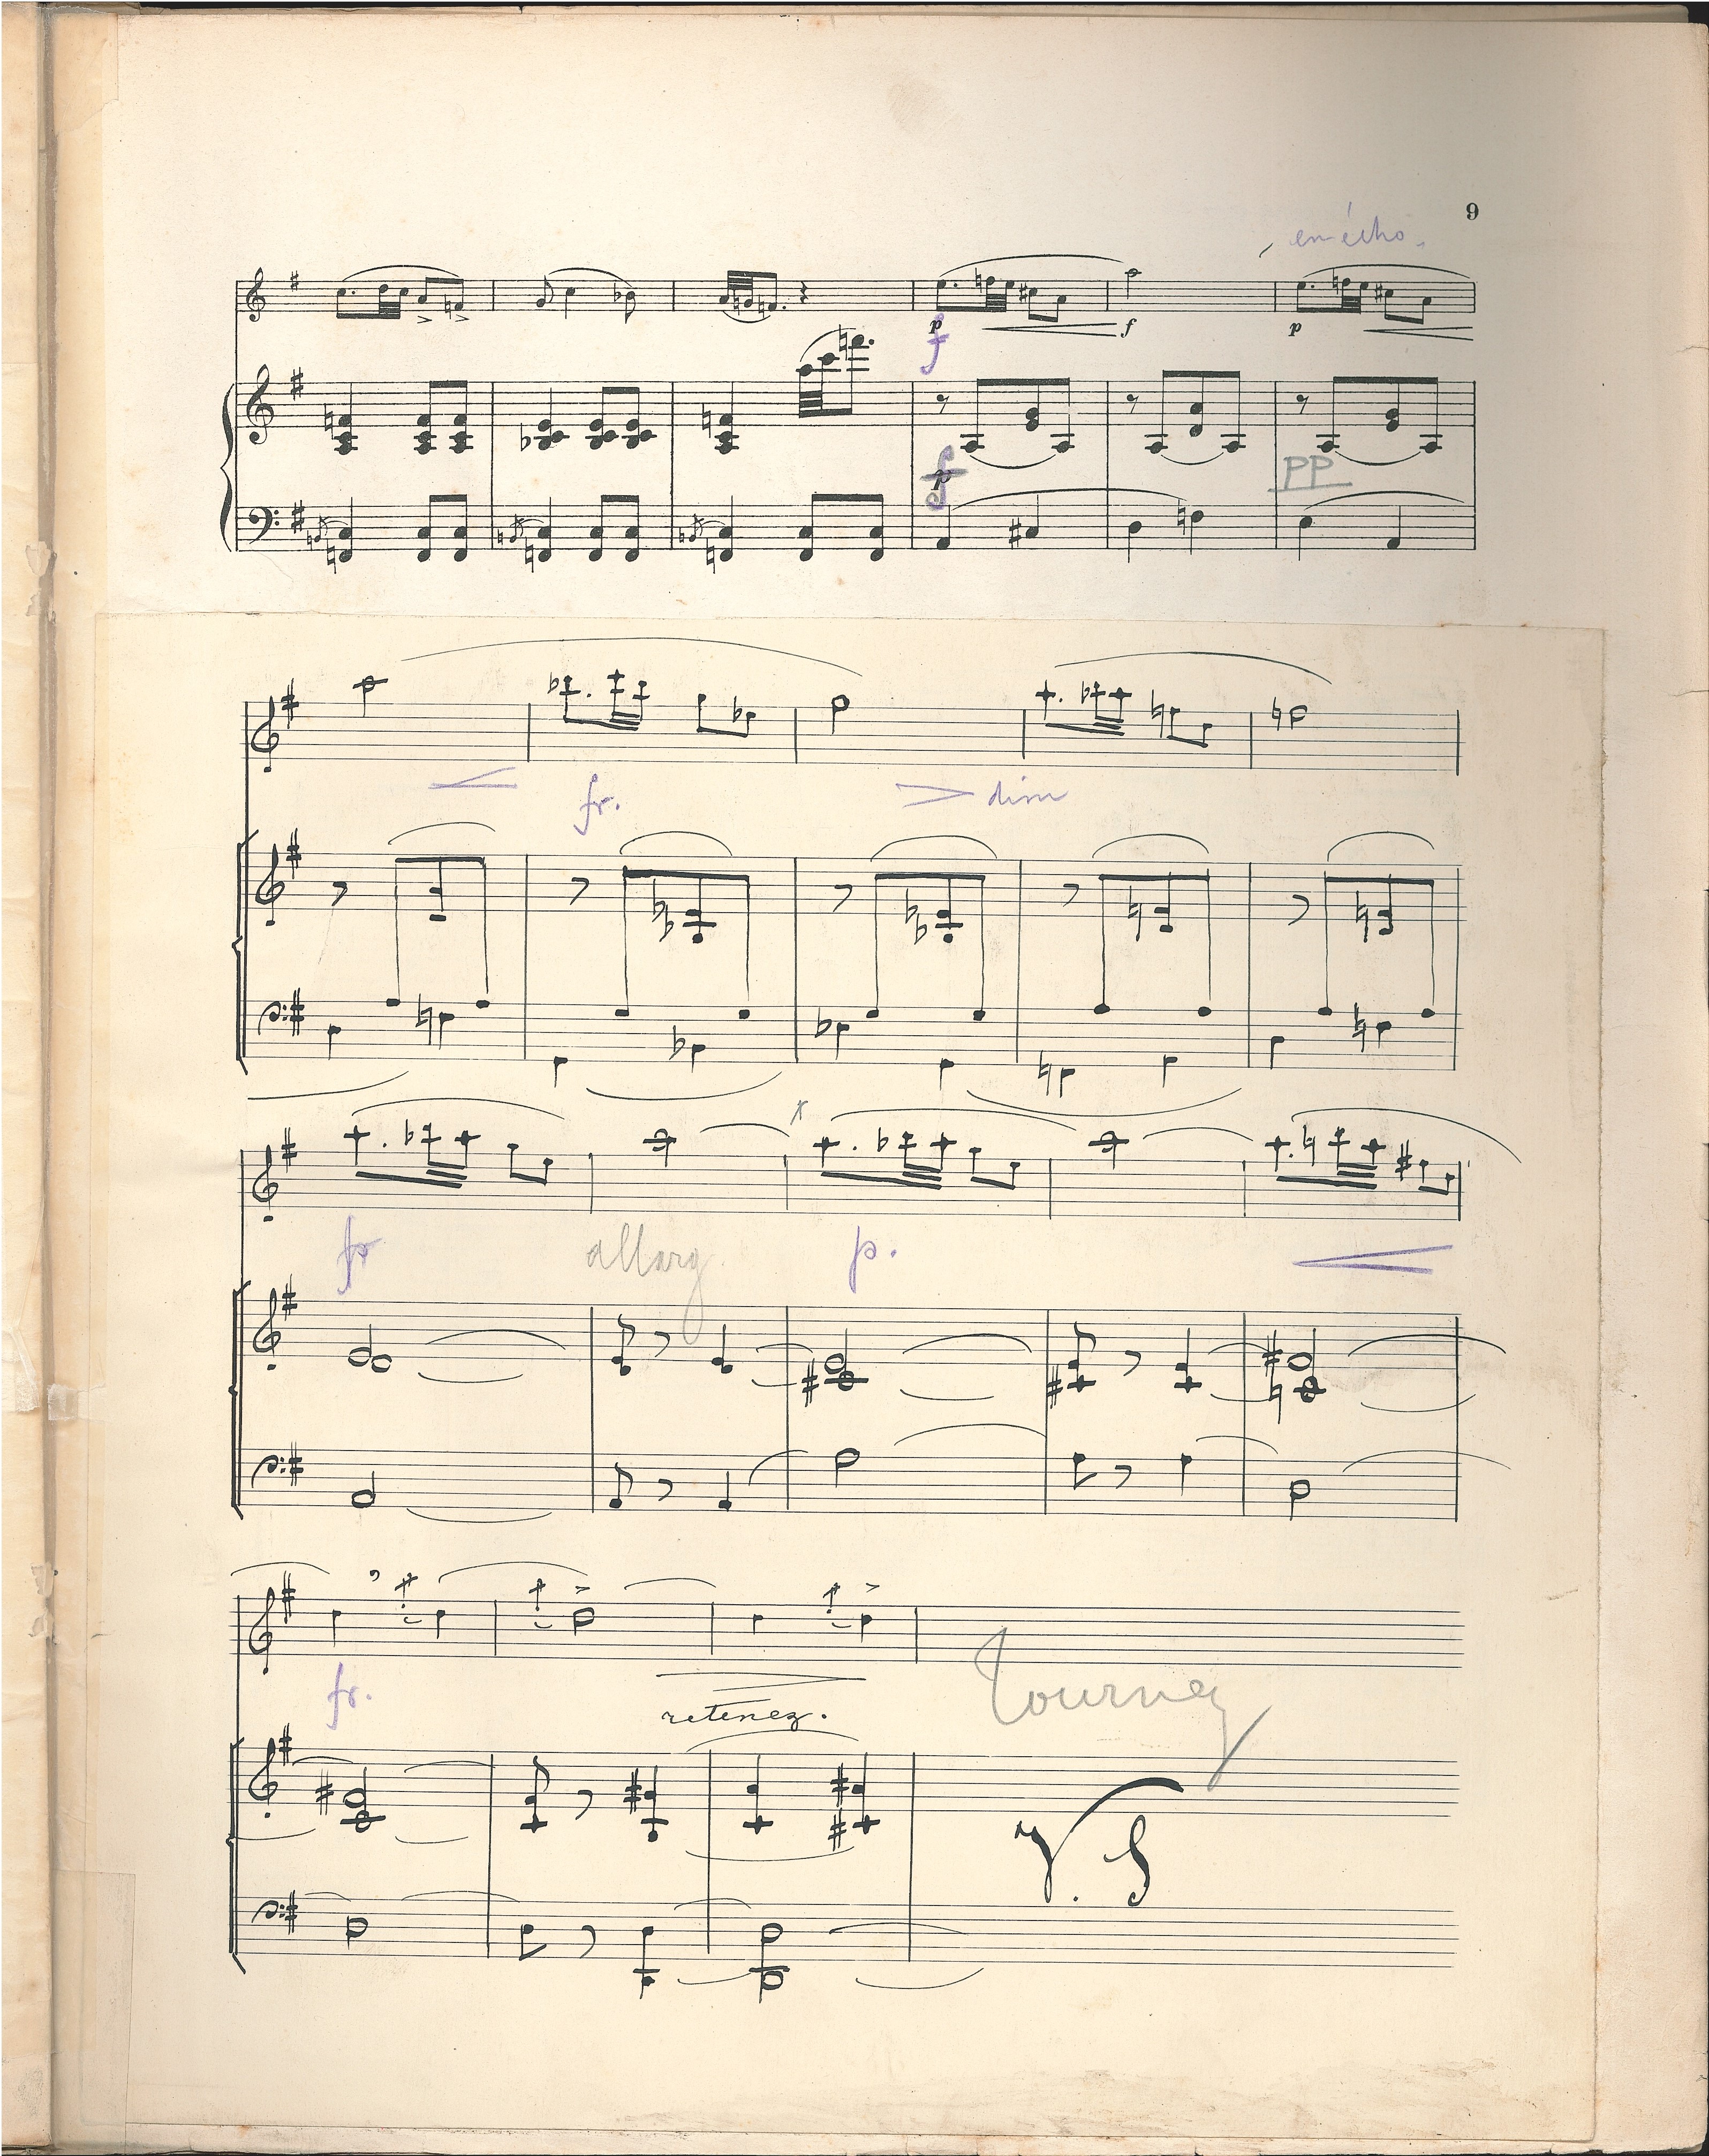 9
en écho.
p f p
f
f
PP
fr. dim
fr allarg. p.
fr.
retenez.
Tournez
V. S